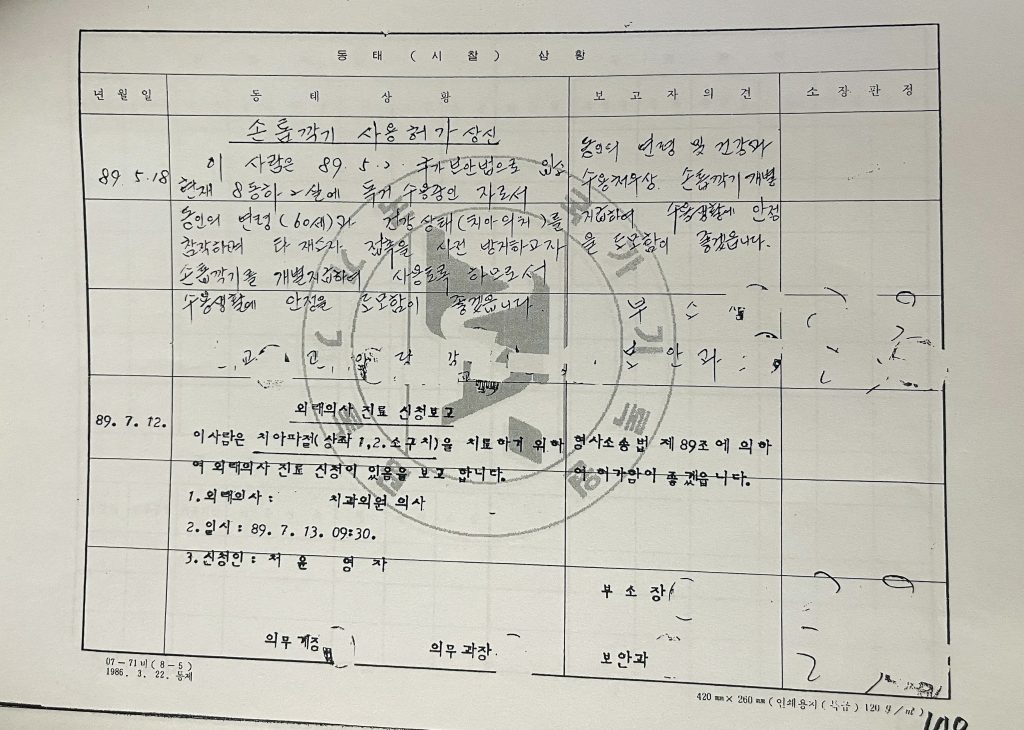 동 태 ( 시 찰 ) 상 황
년 월 일
동 태 상 황
보 고 자 의 견
소 장 판 정
손톱깍기 사용허가 상신
89. 5. 18
이 사람은 89. 5. 2. 국가보안법으로 입소
현재 8동하 2실에 독거 수용중인 자로서
동인의 연령(60세)과 건강상태(치아의치)를
참작하며 타 재소자 접촉을 사전 방지하고자
손톱깍기를 개별지급하여 사용토록 하므로서
수용생활에 안정을 도모함이 좋겠읍니다.
동인의 연령 및 건강과
수용처우상 손톱깍기 개별
지급하여 수용생활에 안정
을 도모함이 좋겠읍니다.
부 소
보 안 과
89. 7. 12.
외래의사 진료 신청보고
이사람은 치아파절(상좌 1,2. 소구치)을 치료하기 위하
여 외래의사 진료 신청이 있음을 보고 합니다.
1. 외래의사 : 치과의원 의사
2. 일시 : 89. 7. 13. 09:30.
3. 신청인 : 처 윤 영 자
형사소송법 제 89조에 의하
여 허가함이 좋겠읍니다.
의무계장
의무과장
부 소 장
보안과
국가기록원
07-71비(8-5)
1986. 3. 22. 등제
420㎜×260㎜(인쇄용지(특급) 120g/㎡)